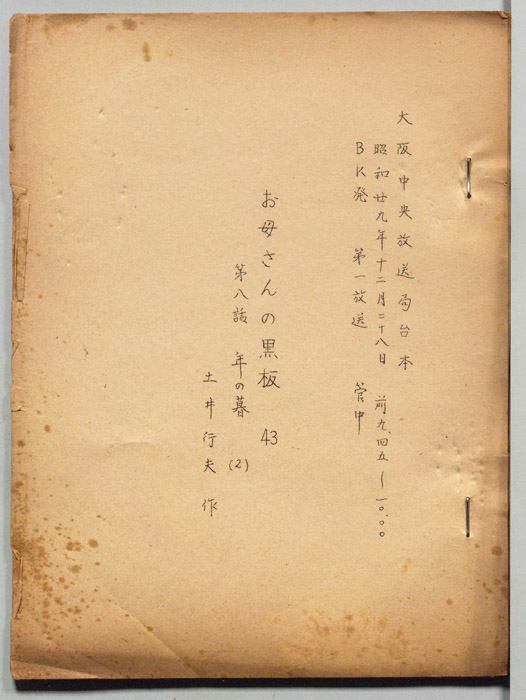 大阪中央放送局台本
昭和廿九年十二月二十八日 前九.四五～一〇.〇〇
BK発 第一放送 管中
お母さんの黒板 43
第八話 年の暮(2)
土井行夫 作